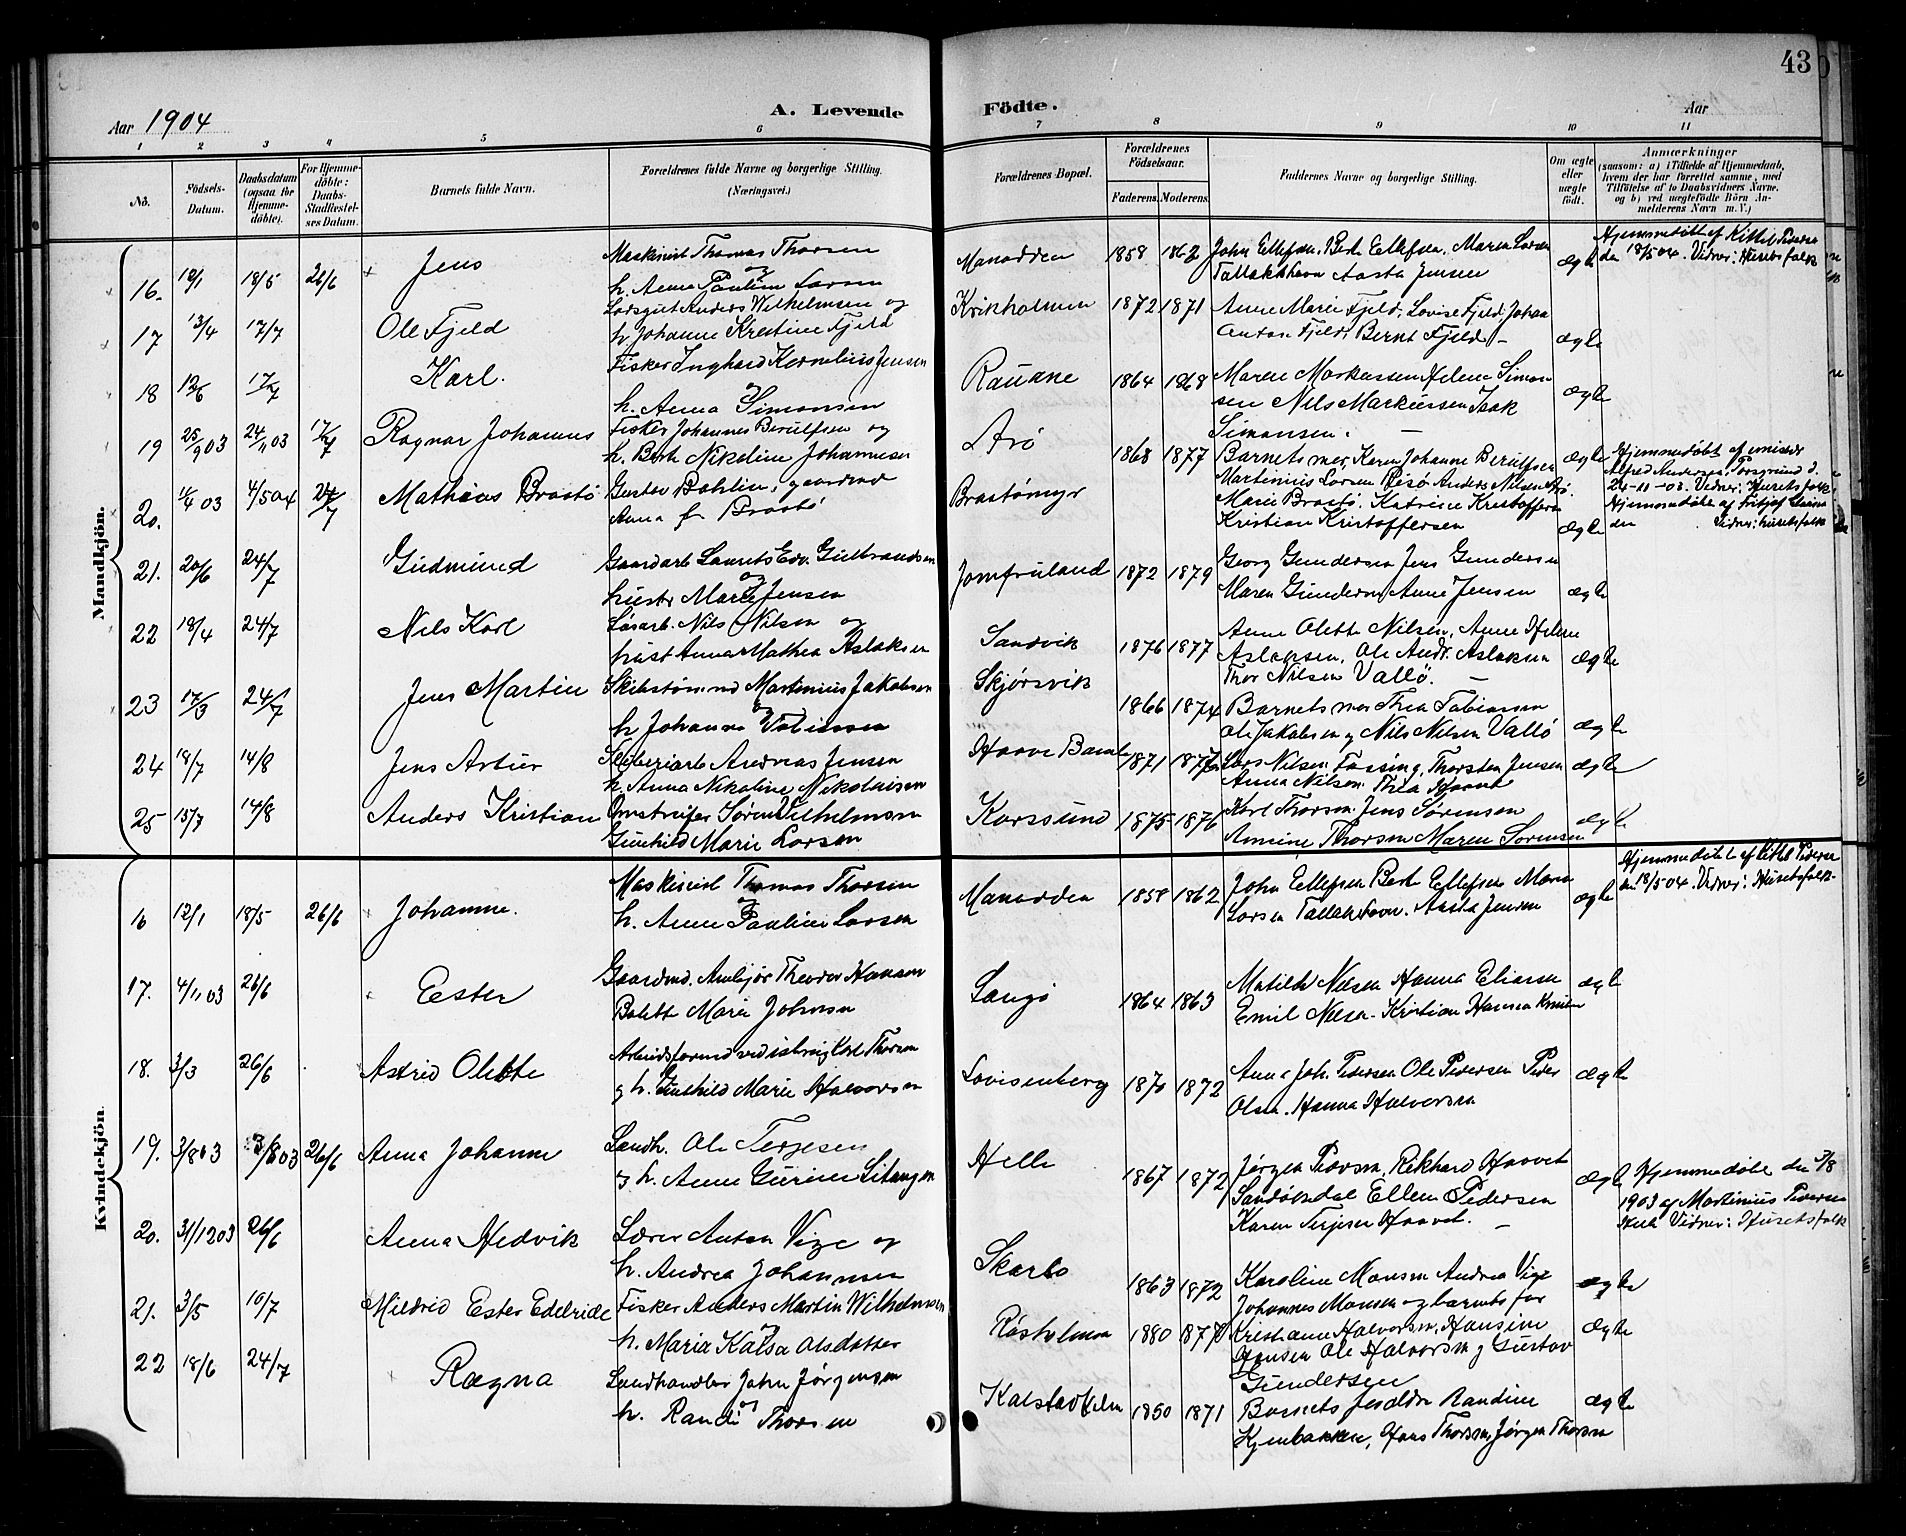 43
Aar 1904
A. Levende Födte.
Aar
1 2 3 4 5 6 7 8 9 10 11
No.
Födsels-Datum.
Daabsdatum (ogsaa for Hjemmedöbte).
For Hjemmedöbte: Daabs-Stadfæstelses Datum.
Barnets fulde Navn.
Forældrenes fulde Navne og borgerlige Stilling.
(Næringsvei.)
Forældrenes Bopæl.
Forældrenes Födselsaar.
Faderens. Moderens.
Faddernes Navne og borgerlige Stilling.
Om ægte eller uægte födt.
Anmærkninger
(saasom: a) i Tilfælde af Hjemmedaab,
hvem der har forrettet samme, med
Tilföielse af to Daabsvidners Navne.
og b) ved uægtefödte Börn An-
melderens Navn m. V.)
Mandkjön.
16. 18/5 26/6 Jens Maskinist Thomas Thorsen og h. Anne Pauline Larsen 1858 1862 John Ellefsen, Berte Ellefsen, Maren Larsen
Tallakshavn Aasta Jensen ægte Hjemmedöbt af Kittel Pedersen
den 18/5 04. Vidner: Husetsfolk
17 13/4 17/7 Ole Fjeld Anders Wilhelmsen og
h. Johanne Kristine Fjeld Krikholmen 1872 1871 Anne Marie Fjeld, Lovise Fjeld, Johan
Anton Fjeld, Bernt Fjeld - ægte
18 12/6 17/7 Karl. Fisker Inghard Kornelius Jensen
og
h. Anna Simonsen Rauane 1864 1868 Maren Markussen Helene Simon
sen Nils Markussen Isak
Simonsen. - ægte
19 25/9 03 24/11 03 17/7 Ragnar Johannes Fisker Johannes Berulfsen og
h. Berte Nikoline Johannesen Arö 1868 1877 Barnets mor, Karen Johanne Berulfsen
Martinius Larsen Anders Nilsen Arö. ægte Hjemmedöbt af
Alfred Andersen, Porsgrund d.
24-11-03. Vidner: Husetsfolk
20. 03 4/5 04 24/7 Mathias Brostö Gustav Bohlin, gaardmd
Anna f. Brostö Brostömyr Marie Brostö, Katrine Kristoffersen
Kristian Kristoffersen ægte Hjemmedöbt af Fritjof
den Vidner: husetsfolk
21. 20/6 24/7 Gudmund Gaardarb. Laurits Edv. Gulbrandsen
og
hustr Marie Jensen Jomfruland 1872 1879 Georg Gundersen Jens Gundersen
Maren Gundersen, Anne Jensen ægte
22 18/4 24/7 Nils Karl Nils Nilsen og
hust Anna Mathea Aslaksen Sandvik 1876 1877 Anne Olette Nilsen, Anne Helene
Aslaksen, Ole Andr. Aslaksen
Thor Nilsen Vallö. - ægte
23 17/3 24/7 Jens Martin Skibstömmd Martinius Jakobsen
og
h Johanne Tobiassen Skjörsvik 1866 1874 Barnets mor Thea Tobiassen
Ole Jakobsen og Nils Nilsen Vallö ægte
24 18/7 14/8 Jens Artur Andreas Jensen
h. Anna Nikoline Nikolaisen Haave Bamle 1871 Lars Nilsen Fossing, Thorsten Jensen
Anna Nilsen. Thea Haavet ægte
25 15/7 14/8 Anders Kristian Sören Vilhelmsen
Gunhild Marie Larsen Korssund 1875 1876 Karl Thorsen. Jens Sørensen
Annine Thorsen Maren Sørensen ægte
Kvindekjön.
16 12/1 18/5 26/6 Johanne. Maskinist Thomas Thorsen
og
h. Anne Pauline Larsen 1858 1862 John Ellefsen Berte Ellefsen Maren
Larsen Tallakshavn. Aasta Jensen ægte Hjemmedöbt af Kittel Pedersen
den 18/5 04. Vidner: Husetsfolk.
17. 4/11 03 26/6 Ester Gaardmd. Theodor Hansen
Bolette Marie Johnsen Langö 1864 1863 Matilde Nilsen Hanna Eliassen
Emil Nilsen. Kristian Hanna ægte
18. 3/3 26/6 Astrid Olette Arbeidsformd ved isbrug Karl Thorsen
og h. Gunhild Marie Halvorsen Lovisenberg 1870 1872 Anna Joh. Pedersen Ole Pedersen Peder
Olsen. Hanna Halvorsen ægte
19. 3/8 03 3/8 03 26/6 Anna Johanne Landh. Ole Terjesen
og h. Anne Gurine Litangen Helle 1867 1872 Jørgen Rikhard Haavet
Sandökedal Ellen Pedersen
Karen Terjesen Haavet. - ægte Hjemmedöbt den 3/8
1903 af Martinius Pedersen
Vidner: Husetsfolk
20. 31/12 03 26/6 Anna Hedvik Lærer Anton Vige og
h. Andrea Johannesen Skarbo 1863 1872 Karoline Monsen Andrea Vige
Johannes Monsen og barnets far ægte
21. 3/5 10/7 Mildrid Ester Edelride Fisker Anders Martin Wilhelmsen
og
h. Maria Kaisa Olsdatter Røsholmen 1880 1877 Kristiane Halvorsen, Hansine
Hansen Ole Halvorsen og Gustav
Gundersen ægte
22 18/6 24/7 Ragna Landhandler John Jørgensen
og
h. Randi Thorsen Kalstadkilen 1850 1871 Barnets foreldre Randine
Kjenbakken, Hans Thorsen, Jørgen Thorsen ægte